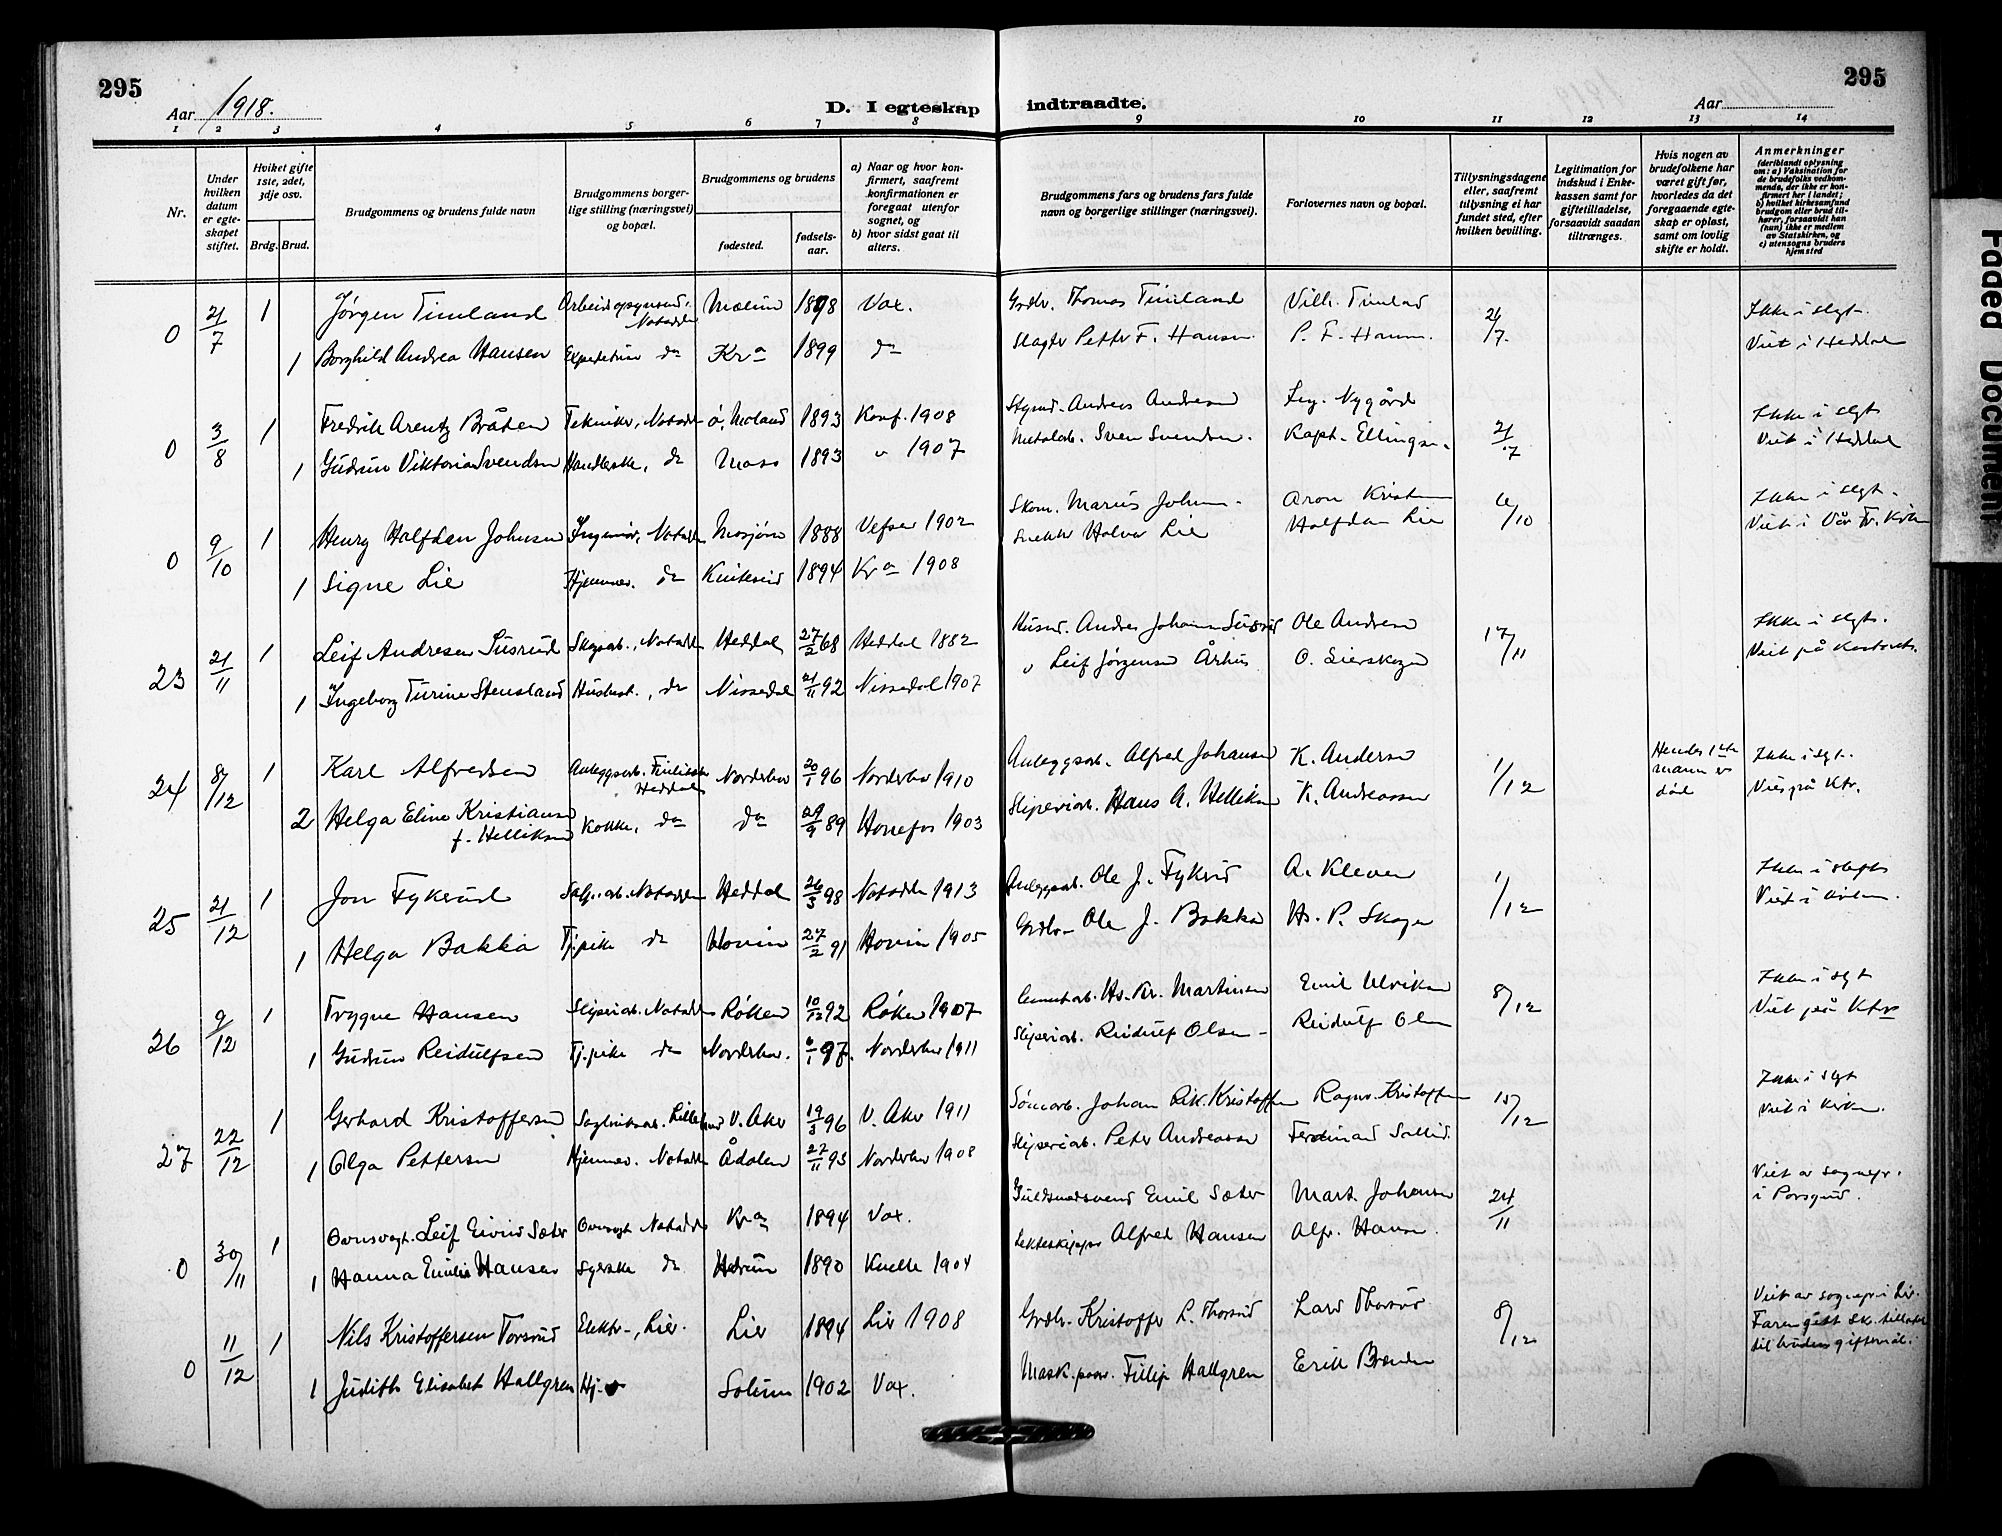 295
295
Aar 1918.
D. I egteskap indtraadte.
Aar
1 2 3 4 5 6 7 8 9 10 11 12 13 14
Nr.
Under hvilken datum er egteskapet stiftet.
Hvilket gifte 1ste, 2det, 3dje osv.
Brdg. Brud.
Brudgommens og brudens fulde navn
Brudgommens borgerlige stilling (næringsvei) og bopæl.
Brudgommens og brudens
fødested.
fødselsaar.
a) Naar og hvor konfirmert, saafremt konfirmationen er foregaat utenfor sognet, og
b) hvor sidst gaat til alters.
Brudgommens fars og brudens fars fulde navn og borgerlige stillinger (næringsvei).
Forlovernes navn og bopæl.
Tillysningsdagene eller, saafremt tillysning ei har fundet sted, efter hvilken bevilling.
Legitimation for indskud i Enkekassen samt for giftetilladelse, forsaavidt saadan tiltrænges.
Hvis nogen av brudefolkene har været gift før, hvorledes da det foregaaende egteskap er opløst, samt om lovlig skifte er holdt.
Anmerkninger (deriblandt oplysning om: a) Vaksination for de brudefolks vedkommende, der ikke er konfirmert her i landet; b) hvilket kirkesamfund brudgom eller brud tilhører, forsaavidt han (hun) ikke er medlem av Statskirken, og c) utensogns bruders hjemsted
0 21/7 1 Jørgen Timland Notodden 1898 Vox. Grdbr. Thomas Timland Vilh. Timland 21/7. Ikke i slegt.
1 Borghild Andrea Hansen do Kr.a 1899 do Slagter Petter F. Hansen P. F. Hansen. Viet i Heddal
0 3/8 1 Fredrik Arentz Bråten Tekniker, Notodden ø. Moland 1893 Konf. 1908 Andreas Andresen Nygård 21/7 Ikke i slegt
1 Gudrun Viktoria Svendsen Handleske, do Moss 1893 " 1907 Sven Svendsen. Kapt. Ellingsen. Viet i Heddal
0 9/10 1 Henry Halfdan Johnsen Ingeniør, Notodden Mosjøen 1888 Vefsn 1902 Skom. Marius Johnsen. Aron Kristensen 6/10 Ikke i slegt.
1 Signe Lie do Kviteseid 1894 Kr.a 1908 Snekker Halvor Lie Halfdan Lie Viet i Vår Fr. Kirke
23 21/11 1 Leif Andresen Susrud Notodden Heddal 27/2 68 Heddal 1882 Husmd. Andres Johansen Susrud Ole Andresen 17/11 Ikke i slegt.
1 Ingeborg Turine Stensland do Nissedal 21/11 92 Nissedal 1907 " Leif Jørgensen Århus O. Sierskogen Viet på Kontoret.
24 8/12 1 Karl Alfredsen Anleggsarb. Heddal Norderhov 20/1 96 Norderhov 1910 Anleggsarb. Alfred Johansen K. Andersen 1/12 Hendes 1ste mann er død Ikke i slegt.
2 Helga Eline Kristiansen f. Helliksen Kokke, do do 29/9 89 Hønefos 1903 Sliperiarb. Hans A. Helliksen K. Andreassen Viet på Ktr.
25 21/12 1 Jon Fykerud Notodden Heddal 26/3 98 Notodden 1913 Anleggsarb. Ole J. Fykerud A. Kleven 1/12 Ikke i slegt
1 Helga Bakka Tj.pike do Hovin 27/2 91 Hovin 1905 Grdbr. Ole J. Bakka Hs. P. Skogen Viet i Kirken.
26 9/12 1 Trygve Hansen Sliperiarb. Notodden Røken 10/12 92 Røken 1907 Cementarb. Hs. Kr. Martinsen Emil Ulriksen 8/12 Ikke i slegt
1 Gudrun Reidulfsen Tj.pike do Norderhov. 97. Norderhov 1911 Sliperiarb. Reidulf Olsen Reidulf Olsen Viet på Ktr
27 22/12 1 Gerhard Kristoffersen V. Aker 19/3 96 V. Aker 1911 Johan Rik. Kristoffersen Ragnv. Kristoffersen 15/12 Ikke i slegt
1 Olga Pettersen Hjemmev. Notodden Ådalen 27/11 93 Norderhov 1908 Sliperiarb. Peter Andreassen Ferdinand Viet i Kirken.
0 30/11 1 Ovnsvogt. Leif Eivind Sæter Ovnsvogt Notodden Kr.a 1894 Vox. Guldsmedsvend Emil Sæter Mart. Johansen 24/11 Viet av sognepr. i Porsgrund.
1 Hanna Emilie Hansen Syerske do Hedrum 1890 1904 Lekteskipper Alfred Hansen Alfr. Hansen.
0 11/12 1 Nils Kristoffersen Torsrud Elektr., Lier. Lier 1894 Lier 1908 Grdbr. Kristoffer L. Thorsrud Lars Thorsrud 8/12 Viet av sognepr. i Lier. Faren gitt sk. tillatelse til brudens giftermål.
1 Judith Elisabet Hallgren Hj. Solum 1902 Vox. Filip Hallgren Erik
Faded Document